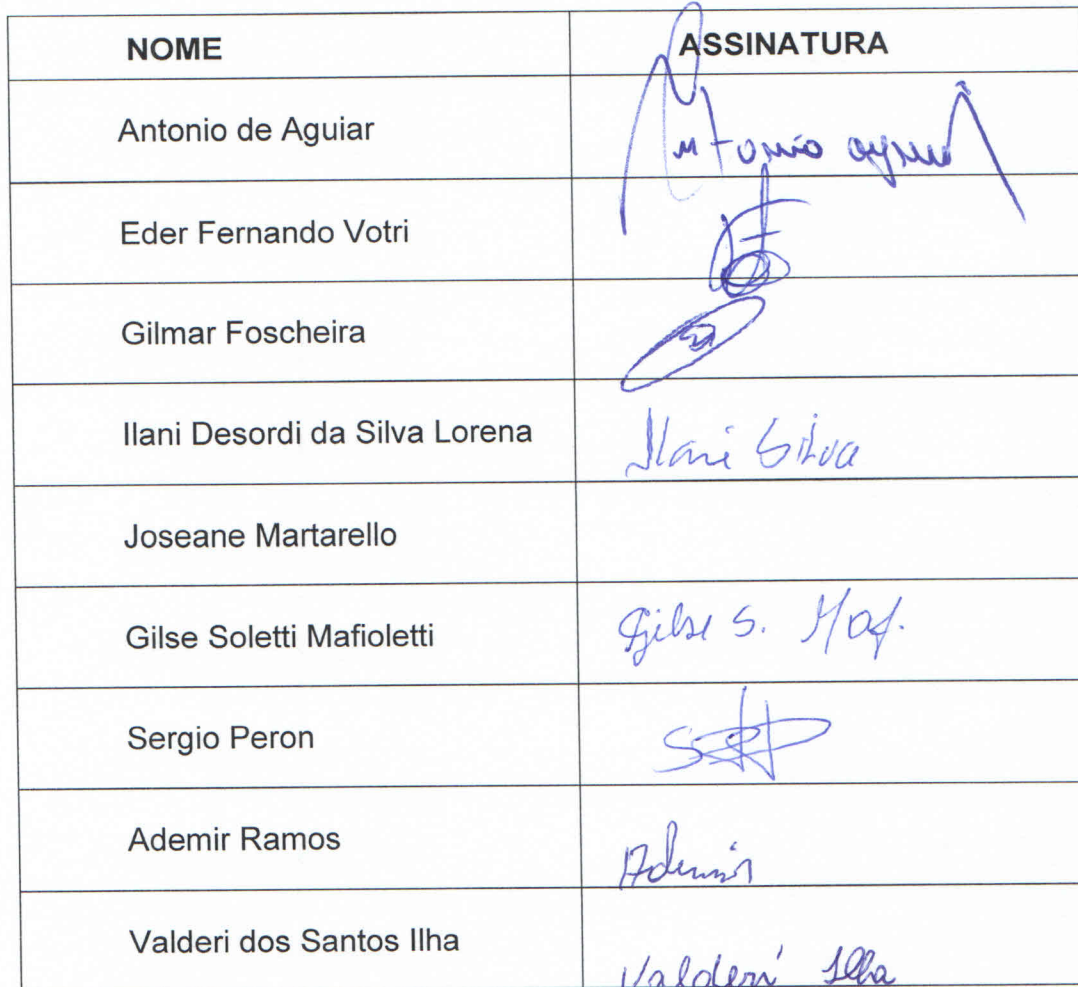 NOME ASSINATURA
Antonio de Aguiar Antonio
Eder Fernando Votri
Gilmar Foscheira
Ilani Desordi da Silva Lorena Ilani Silva
Joseane Martarello
Gilse Soletti Mafioletti Gilse S. Maf.
Sergio Peron
Ademir Ramos Ademir
Valderi dos Santos Ilha Valderi Ilha